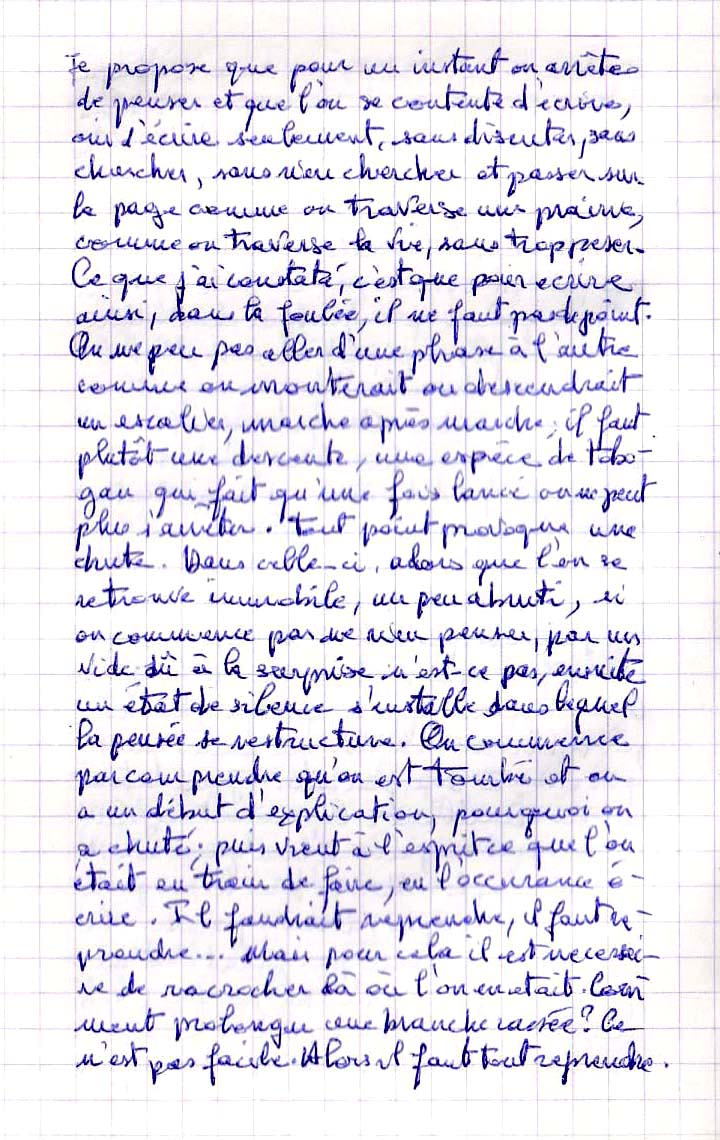 Je propose que pour un instant on arrête
de penser et que l'on se contente d'écrire,
oui d'écrire seulement, sans discuter, sans
chercher, sans rien chercher et passer sur
la page comme on traverse une prairie,
comme on traverse la vie, sans trop peser.
Ce que j'ai constaté, c'est que pour ecrire
ainsi, dans la foulée, il ne faut pas de point.
On ne peu pas aller d'une phrase à l'autre
comme on monterait ou descendrait
un escalier, marche après marche, il faut
plutôt une descente, une espèce de tobo-
gan qui fait qu'une fois lancé on ne peut
plus s'arrêter. Tout point provoque une
chute. Dans celle-ci, alors que l'on se
retrouve immobile, un peu abruti, si
on commence par ne rien penser, par un
vide dû à la surprise n'est-ce pas, ensuite
un état de silence s'installe dans lequel
la pensée se restructure. On commence
par comprendre qu'on est tombé et on
a un début d'explication, pourquoi on
a chuté; puis vient à l'esprit ce que l'on
était en train de faire, en l'occurance é-
crire. Il faudrait reprendre, il faut re-
prendre... Mais pour cela il est necessai-
re de racrocher là où l'on en etait. Com
ment prolonger une branche cassée? Ce
n'est pas facile. Alors il faut tout reprendre.